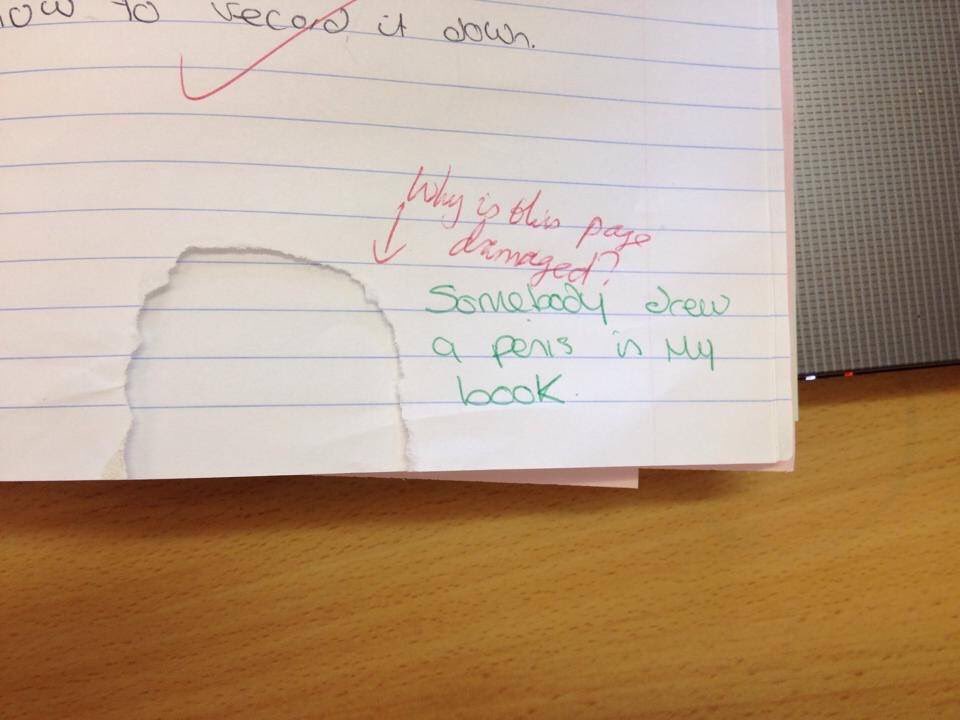 how to record it down.
Why is this page
damaged?
Somebody drew
a penis in My
book.